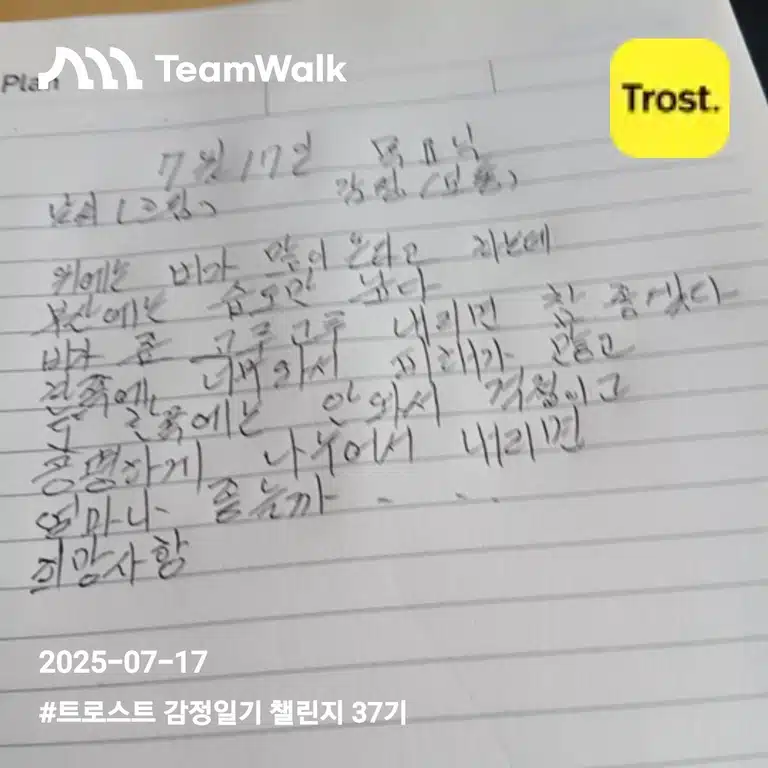 TeamWalk
Plan
Trost.
7월 17일 목요일
날씨 (흐림) 감정 (보통)
위에는 비가 많이 온다고 하는데
부산에는 습도만 높다
비가 좀 고루고루 내리면 참 좋겠다
한쪽에 너무 와서 피해가 많고
또 한쪽에는 안 와서 걱정이고
공평하게 나누어서 내리면
얼마나 좋을까 . . .
희망사항
2025-07-17
#트로스트 감정일기 챌린지 37기